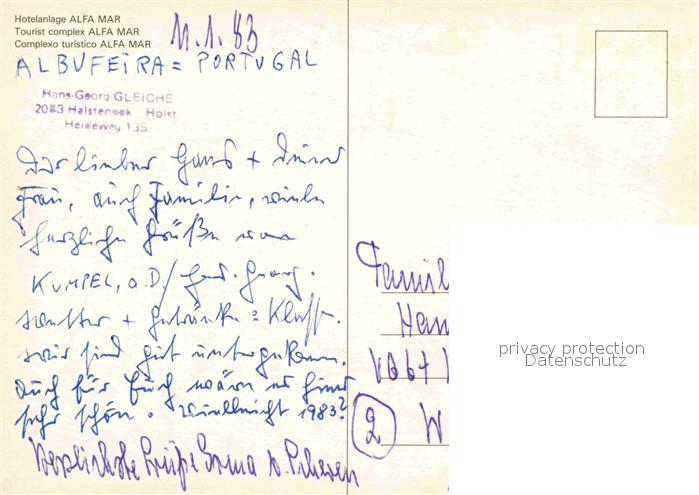 Hotelanlage ALFA MAR
Tourist complex ALFA MAR
Complexo turístico ALFA MAR
11.1.83
ALBUFEIRA = PORTUGAL
Hans-Georg GLEICHE
2083 Halstenbek Holst
Heideweg 135
Dir lieber Hans + Deiner
Frau, auch Familie, viele
herzliche Grüße von
KUMPEL, a.D./ Georg.
Wetter + Getränke = Klasse.
wir sind gut untergekommen.
auch für Euch wäre es hier
sehr schön. Vielleicht 1983?
Herzliche Grüße
Famil
Han
2 W
privacy protection
Datenschutz